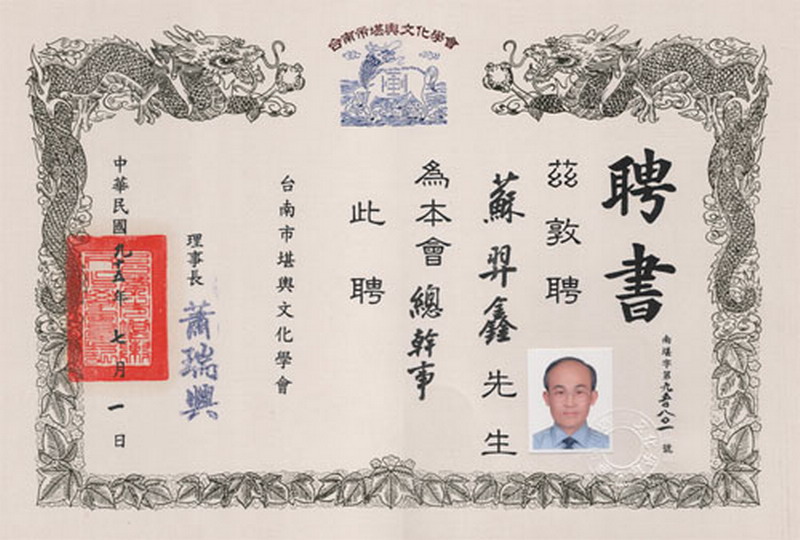 台南市堪輿文化學會
聘書
南堪字第九五八〇一號
茲敦聘
蘇羿鑫先生
為本會總幹事
此聘
台南市堪輿文化學會
理事長 蕭瑞興
中華民國九十五年七月一日